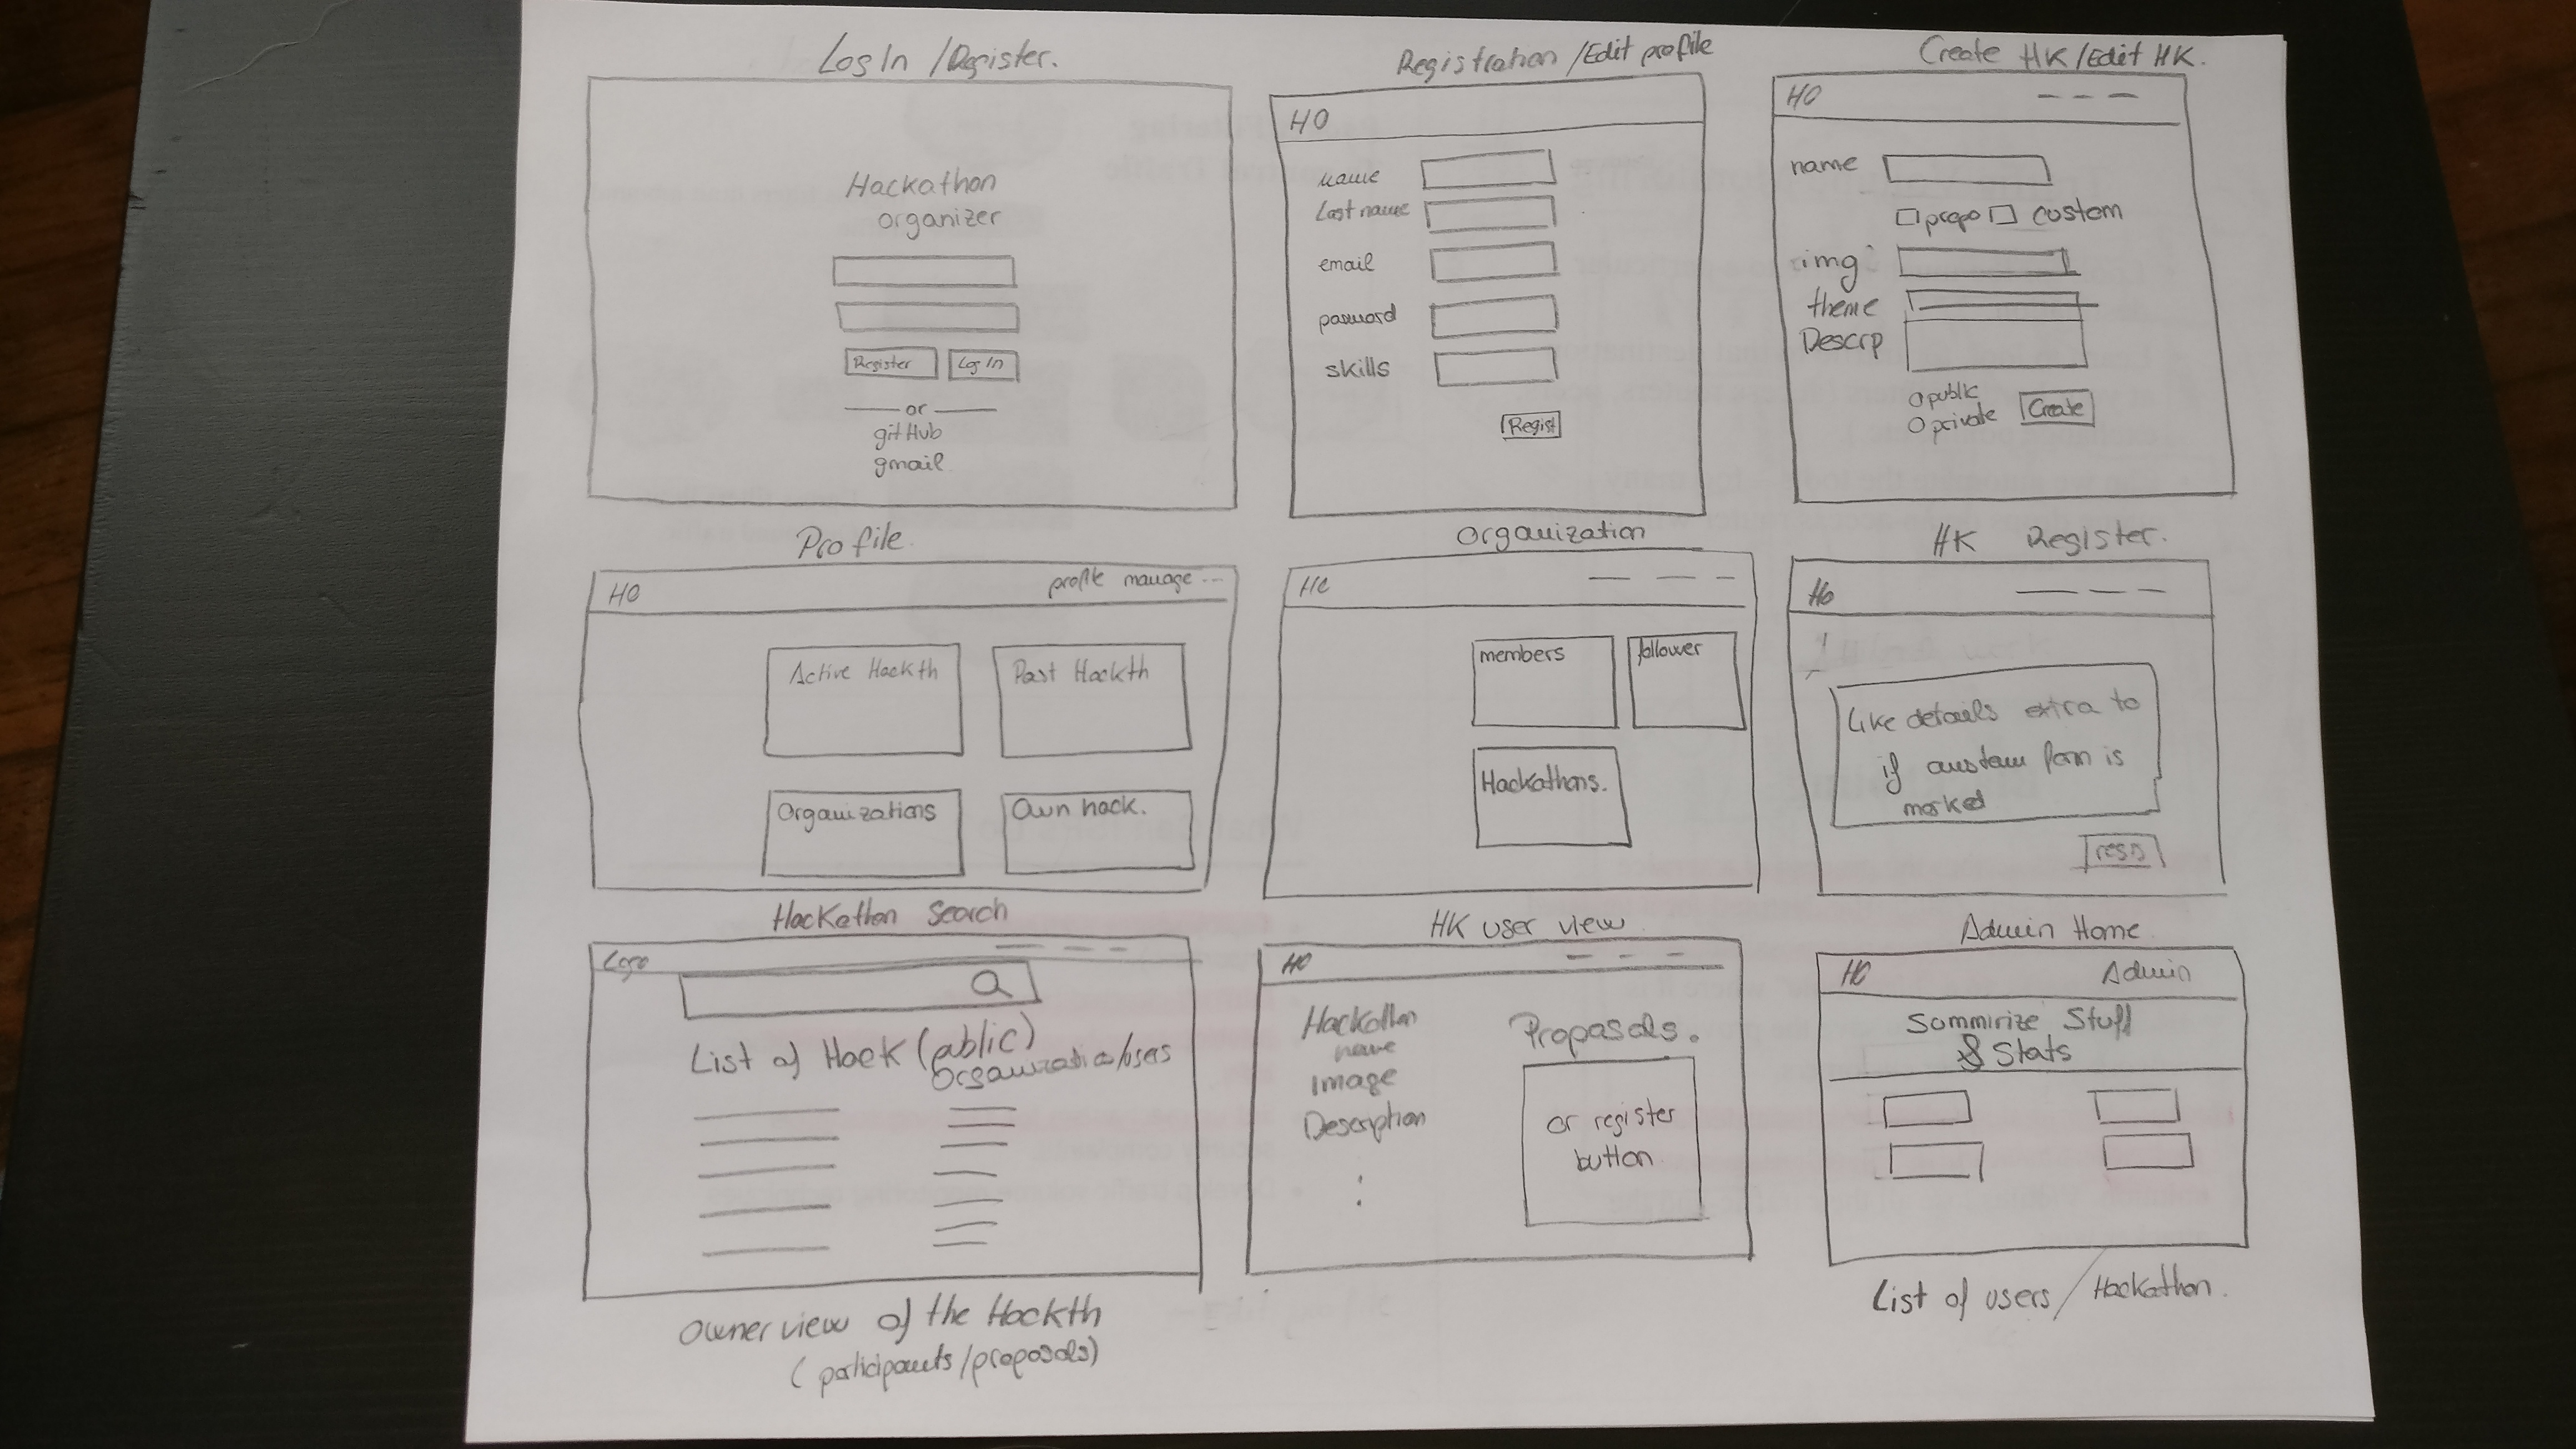 LogIn /Register.
Hackathon
organizer
Register
Log In
or
gitHub
gmail
Registration /Edit profile
HO
name
Last name
email
password
skills
Regist
Create HK/Edit HK.
HO
name
propo
custom
img
theme
Descrp
public
private
Create
Profile
HO
profile manage ...
Active Hackth
Past Hackth
Organizations
Own hack.
Organization
HO
members
follower
Hackathons.
HK Register.
HO
Like details extra to
if custom form is
marked
Hackathon Search
Logo
List of Hack (public)
organization/users
Owner view of the Hackth
(participants/proposals)
HK user view
HO
Hackathon
name
Image
Description
:
Proposals.
or register
button
Admin Home
HO
Admin
Sommirize Stuff
& Stats
List of users / Hackathon.